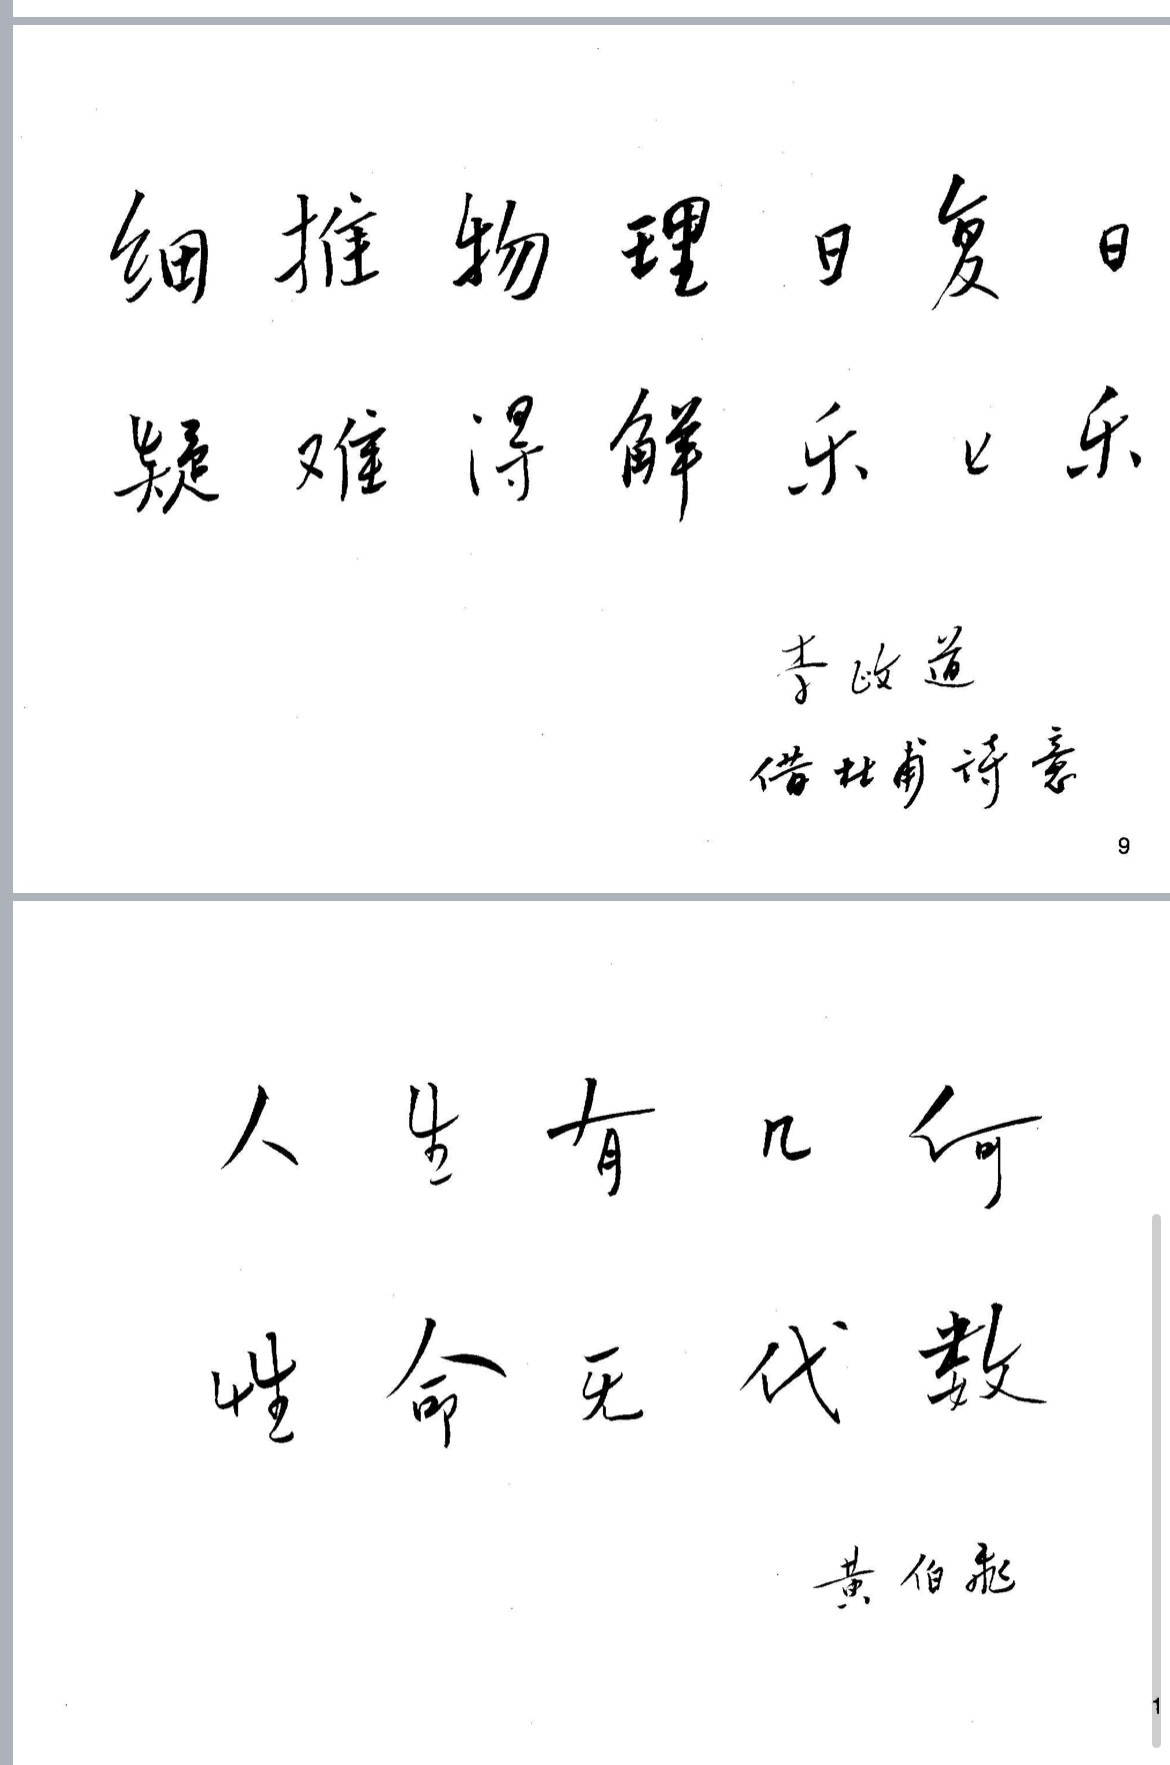 细推物理日复日
疑难得解乐々乐
李政道
借杜甫诗意
9
人生有几何
性命无代数
黄伯飞
1